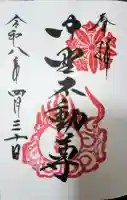 奉拝
不動尊
令和八年四月三十日